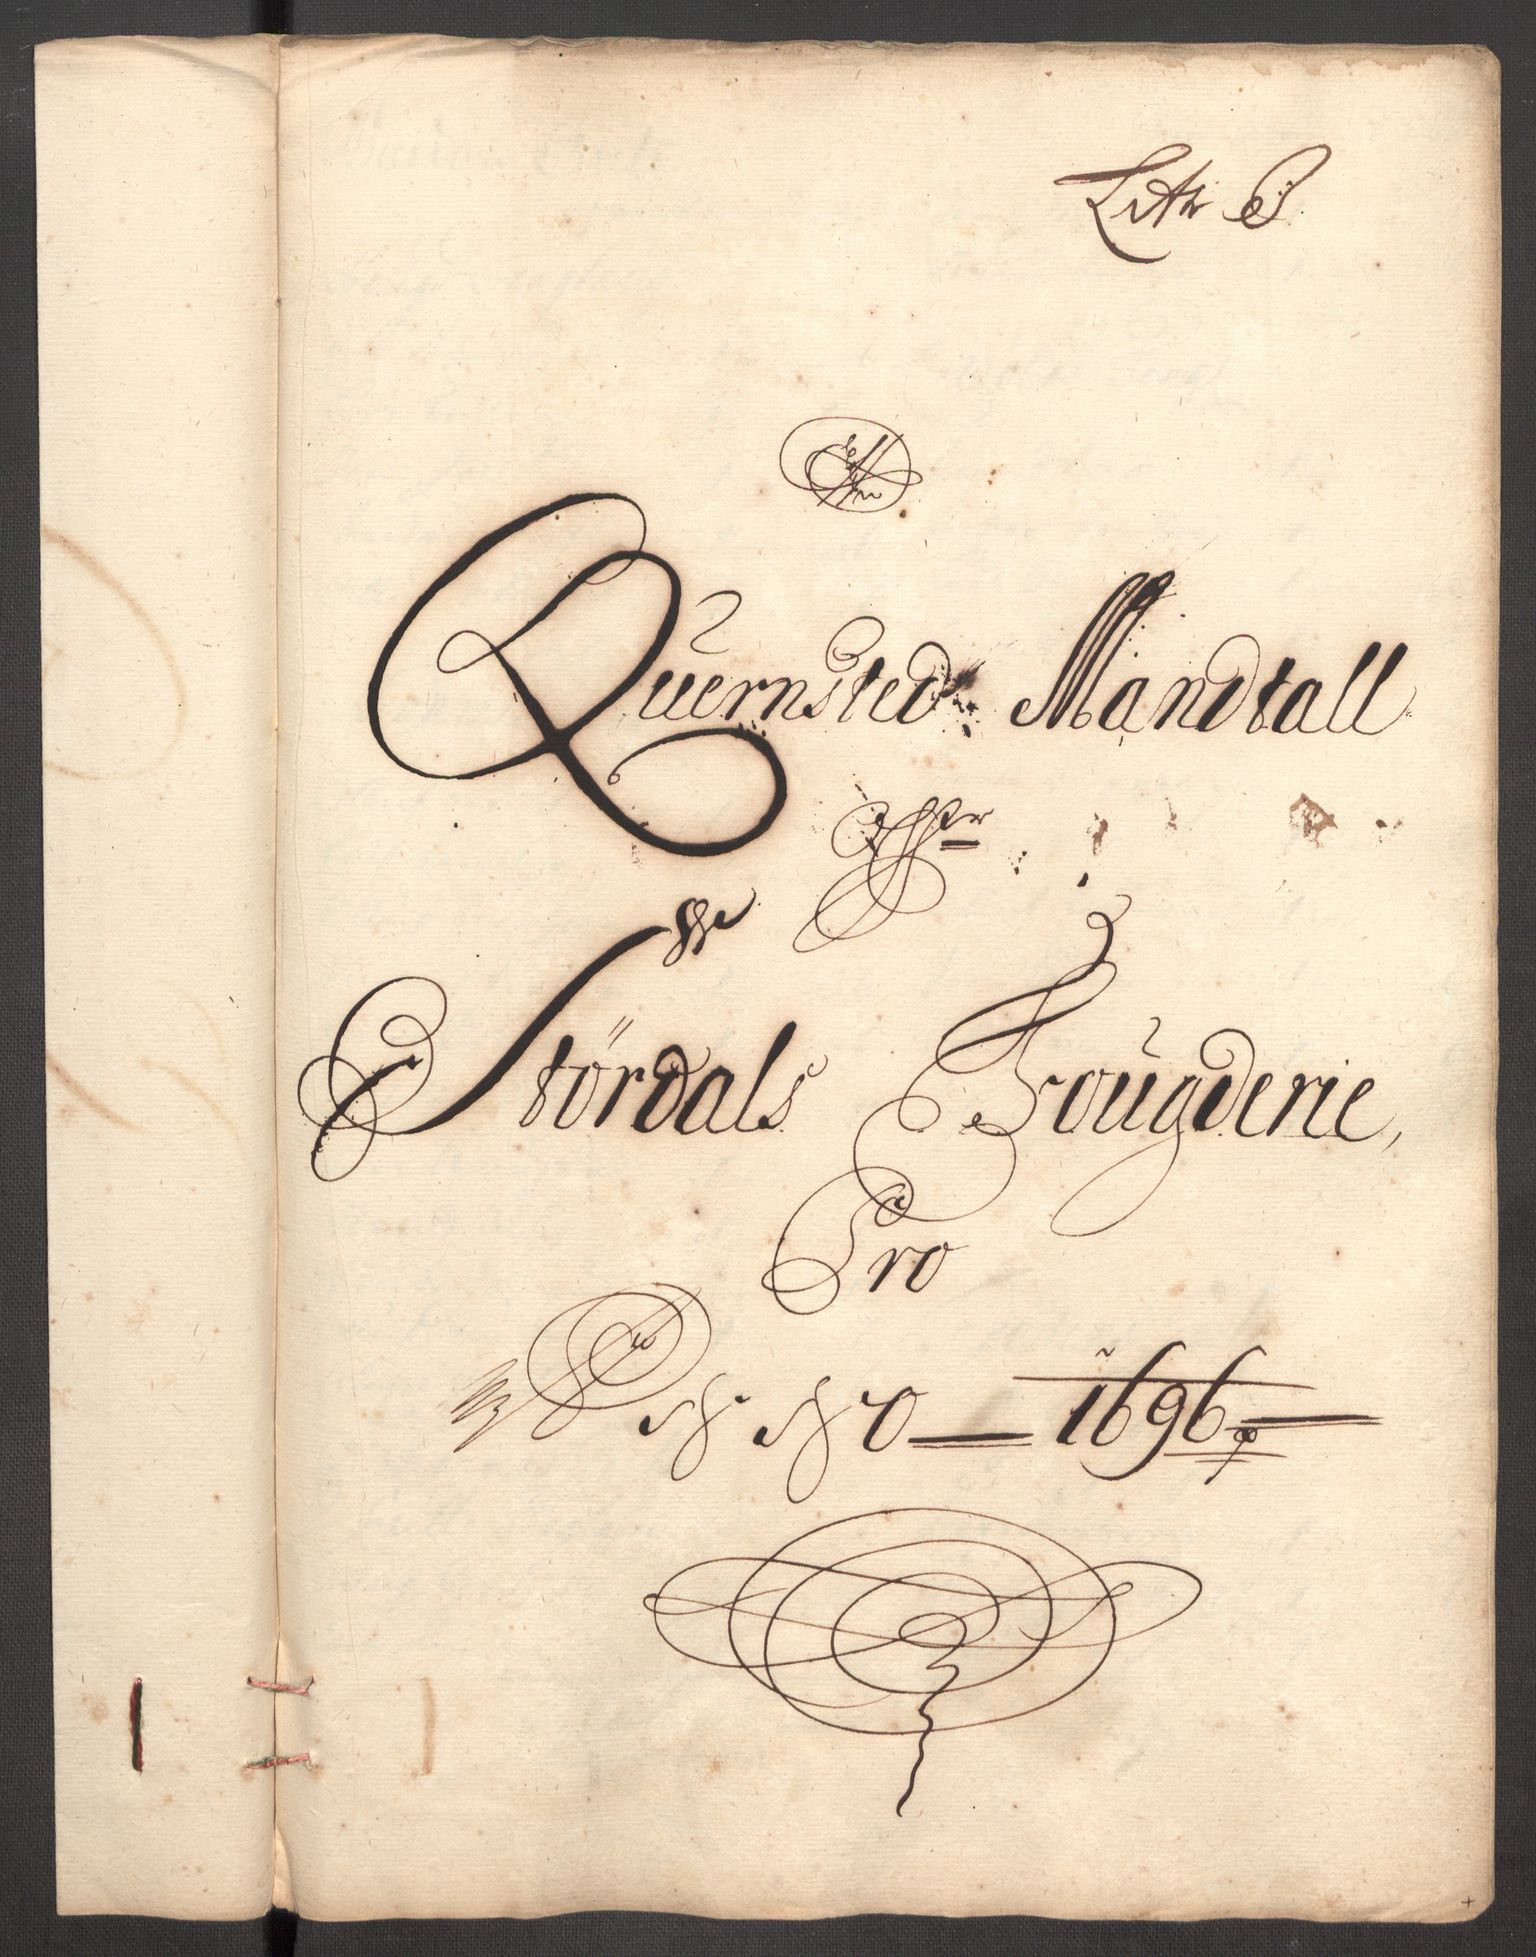 Litr B
Quernsted Mandtall
Stördals Fougderie,
Pro
A͞o 1696